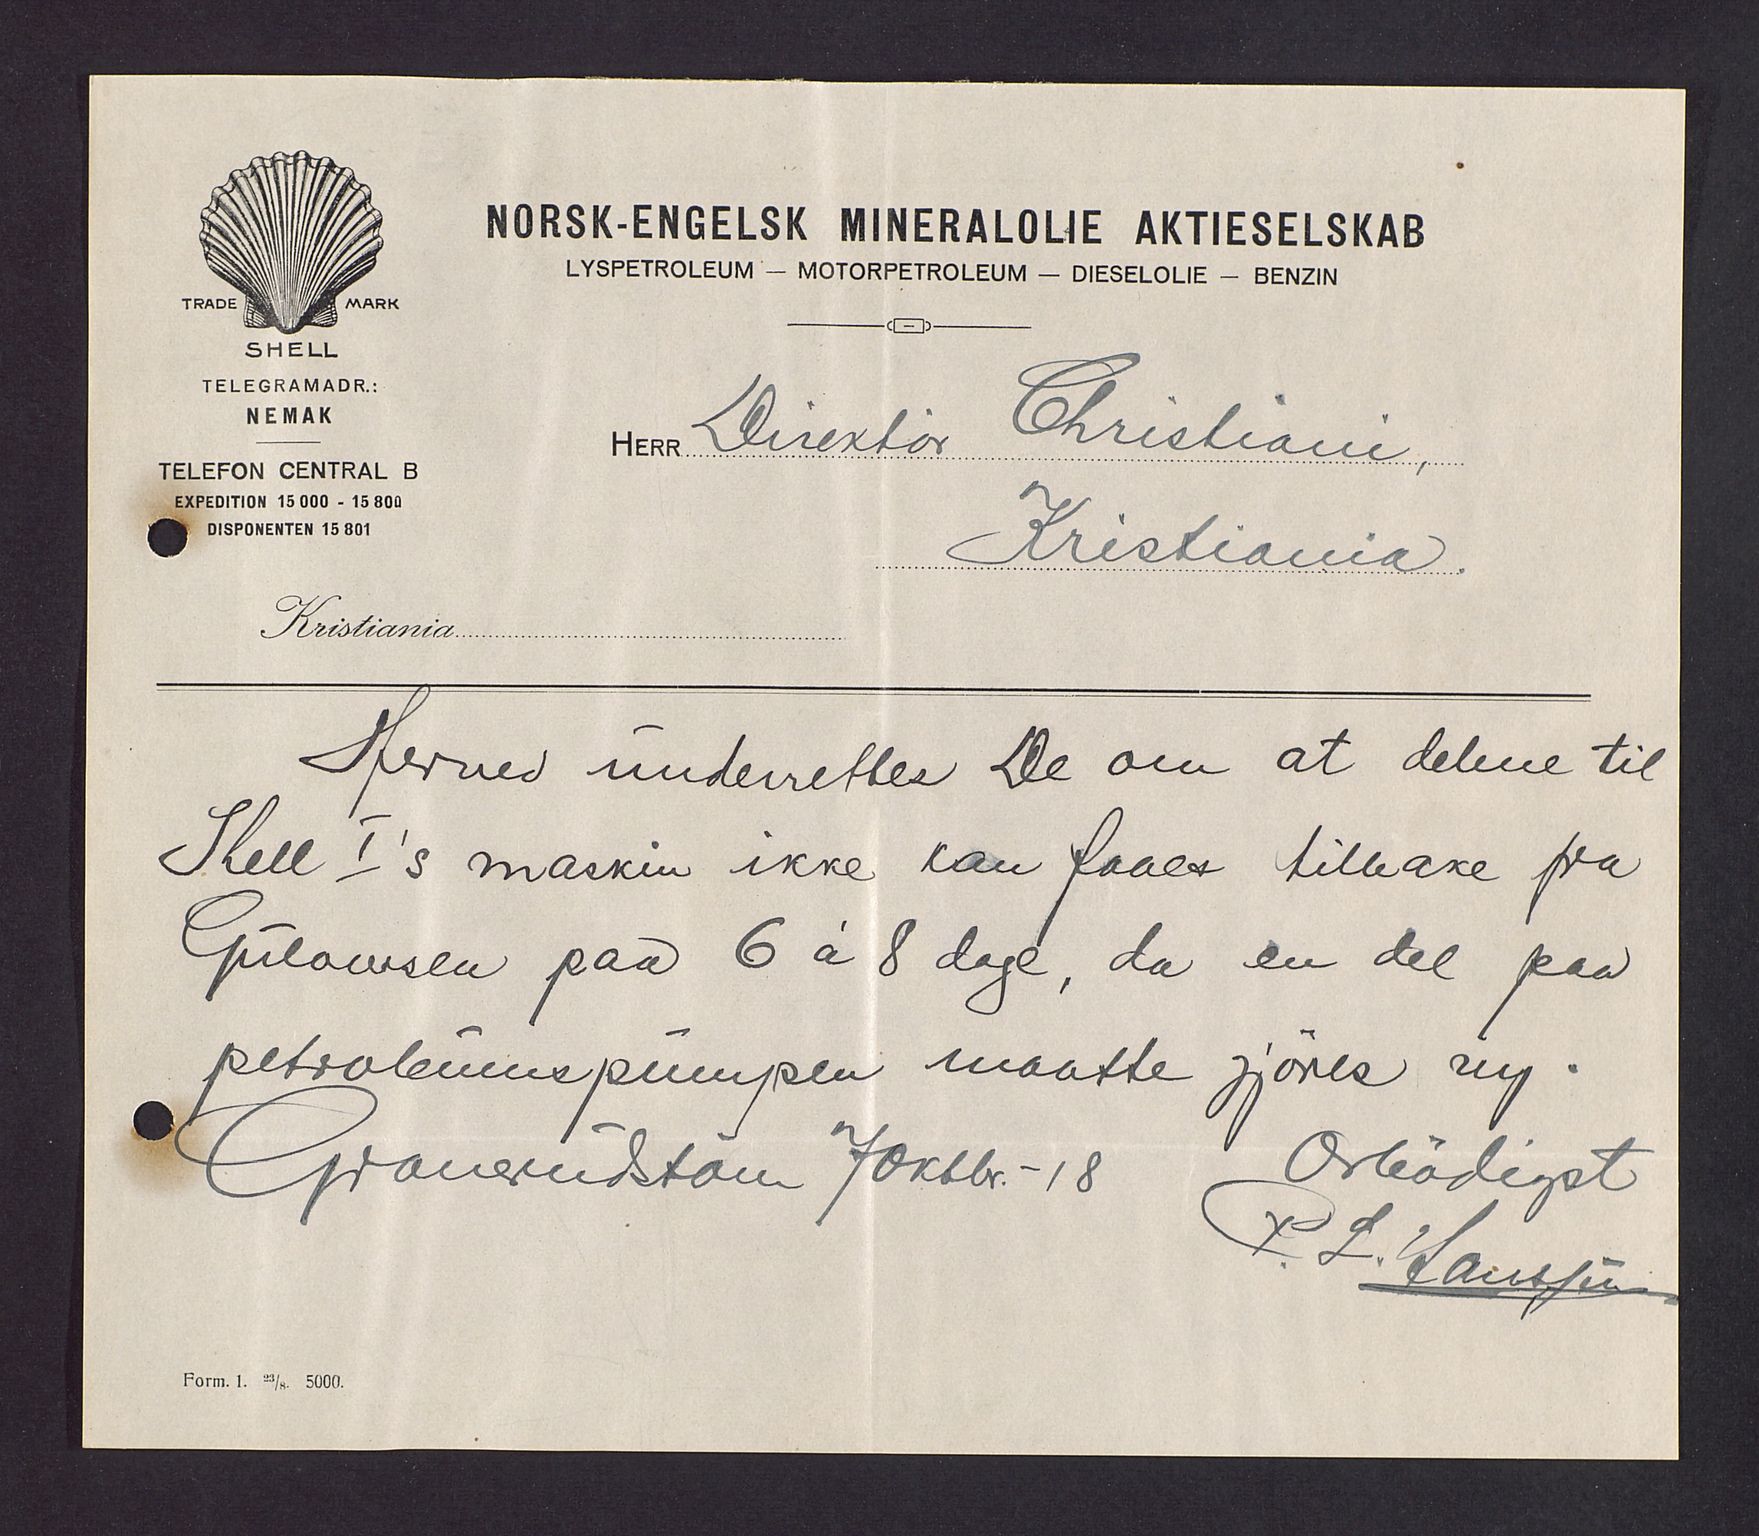 NORSK-ENGELSK MINERALOLIE AKTIESELSKAB
LYSPETROLEUM — MOTORPETROLEUM — DIESELOLIE — BENZIN
TRADE MARK
SHELL
TELEGRAMADR.:
NEMAK
TELEFON CENTRAL B
EXPEDITION 15 000 - 15 800
DISPONENTEN 15 801
HERR Direktör Christiani,
Kristiania.
Kristiania
Herved underrettes De om at delene til
Shell I's maskin ikke kan faaes tilbake fra
Gulowsen paa 6 à 8 dage, da en del paa
petroleumspumpen maatte gjöres ny.
7 Oktbr. -18 Ærbödigst
P. L.
Form. 1. 23/8. 5000.